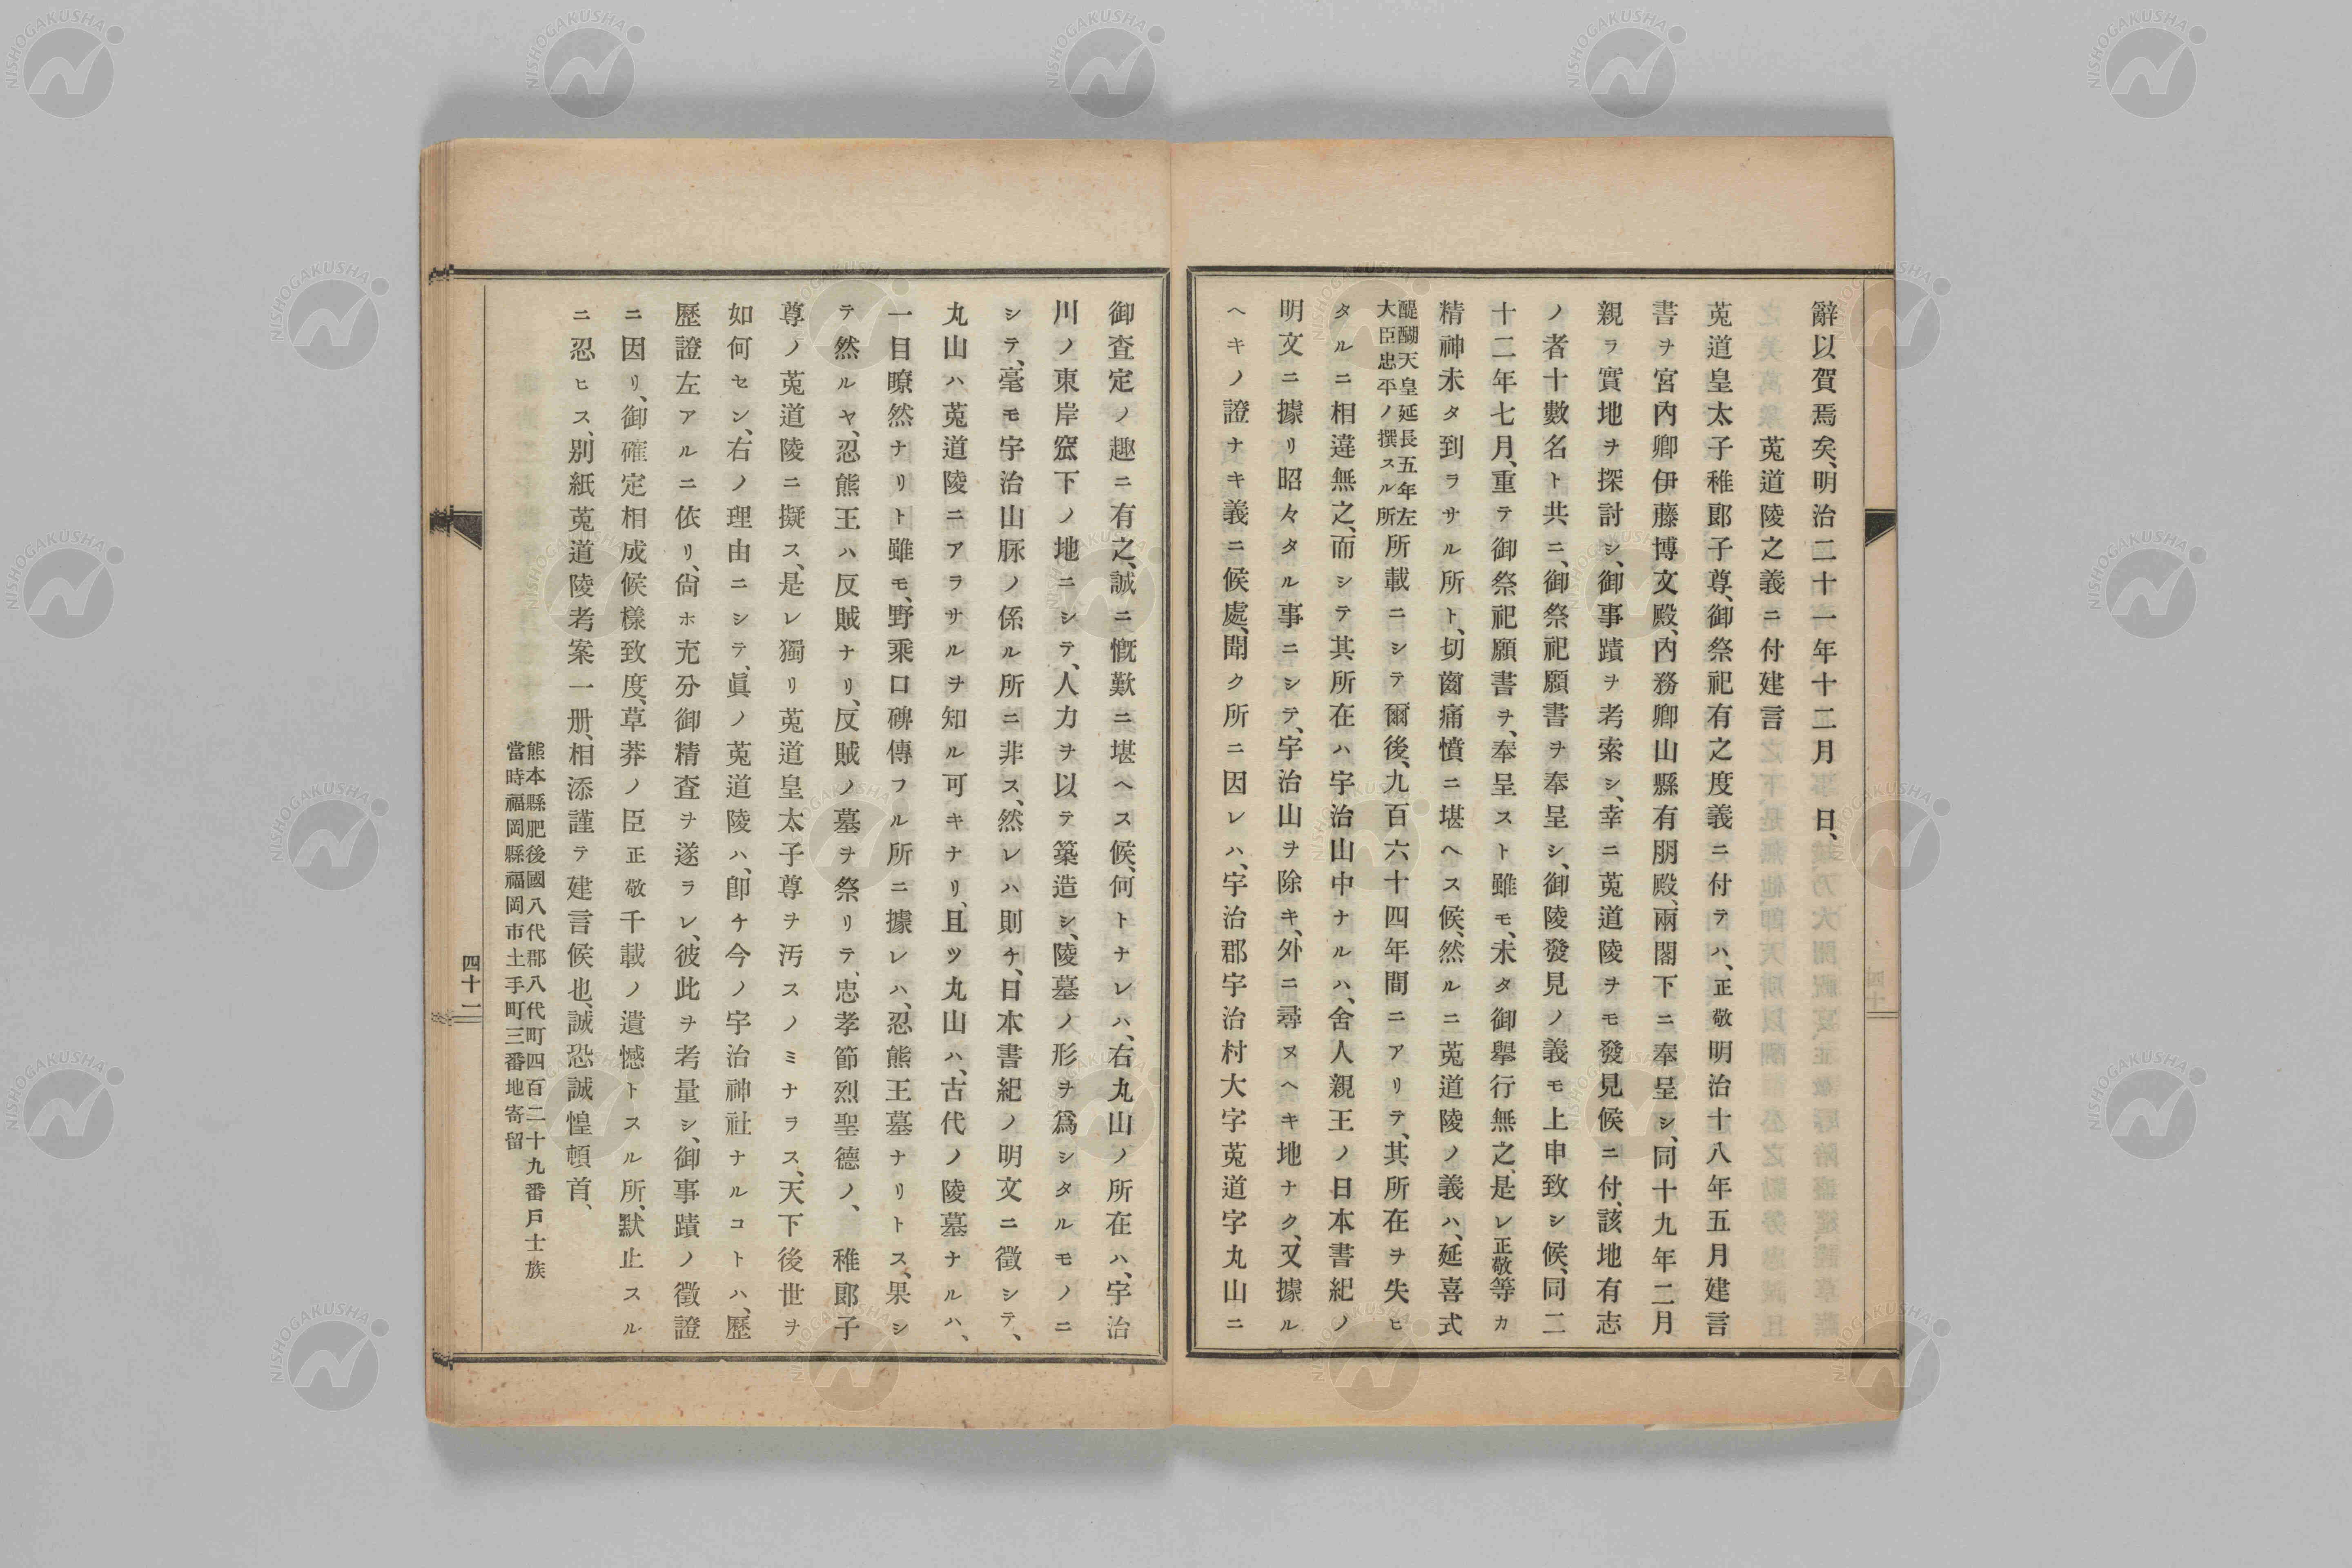 辭以賀焉矣、明治二十一年十二月　日、
菟道陵之義ニ付建言
菟道皇太子稚郎子尊、御祭祀有之度義ニ付テハ、正敬明治十八年五月建言
書ヲ宮內卿伊藤博文殿、內務卿山縣有朋殿、兩閣下ニ奉呈シ、同十九年二月
親ラ實地ヲ探討シ、御事蹟ヲ考索シ、幸ニ菟道陵ヲモ發見候ニ付、該地有志
ノ者十數名ト共ニ、御祭祀願書ヲ奉呈シ、御陵發見ノ義モ上申致シ候、同二
十二年七月、重テ御祭祀願書ヲ、奉呈スト雖モ、未タ御擧行無之、是レ正敬等カ
精神未タ到ラサル所ト、切齒痛憤ニ堪ヘス候、然ルニ菟道陵ノ義ハ、延喜式
醍醐天皇延長五年左
大臣忠平ノ撰スル所
所載ニシテ爾後、九百六十四年間ニアリテ、其所在ヲ失ヒ
タルニ相違無之、而シテ其所在ハ宇治山中ナルハ、舍人親王ノ日本書紀ノ
明文ニ據リ昭々タル事ニシテ、宇治山ヲ除キ、外ニ尋ヌヘキ地ナク、又據ル
ヘキノ證ナキ義ニ候處、聞ク所ニ因レハ、宇治郡宇治村大字菟道字丸山ニ
御査定ノ趣ニ有之、誠ニ慨歎ニ堪ヘス候、何トナレハ、右丸山ノ所在ハ、宇治
川ノ東岸窊下ノ地ニシテ、人力ヲ以テ築造シ、陵墓ノ形ヲ爲シタルモノニ
シテ、毫モ宇治山脉ノ係ル所ニ非ス、然レハ則チ、日本書紀ノ明文ニ徵シテ、
丸山ハ菟道陵ニアラサルヲ知ル可キナリ、且ツ丸山ハ、古代ノ陵墓ナルハ、
一目瞭然ナリト雖モ、野乘口碑傳フル所ニ據レハ、忍熊王墓ナリトス、果シ
テ然ルヤ、忍熊王ハ反賊ナリ、反賊ノ墓ヲ祭リテ、忠孝節烈聖德ノ、稚郎子
尊ノ菟道陵ニ擬ス、是レ獨リ菟道皇太子尊ヲ汚スノミナラス、天下後世ヲ
如何セン、右ノ理由ニシテ、眞ノ菟道陵ハ、卽チ今ノ宇治神社ナルコトハ、歷
歷證左アルニ依リ、尙ホ充分御精査ヲ遂ラレ、彼此ヲ考量シ、御事蹟ノ徵證
ニ因リ、御確定相成候樣致度、草莽ノ臣正敬千載ノ遺憾トスル所、默止スル
ニ忍ヒス、別紙菟道陵考案一册、相添謹テ建言候也、誠恐誠惶頓首、
熊本縣肥後國八代郡八代町四百二十九番戶士族
當時福岡縣福岡市土手町三番地寄留
四十一